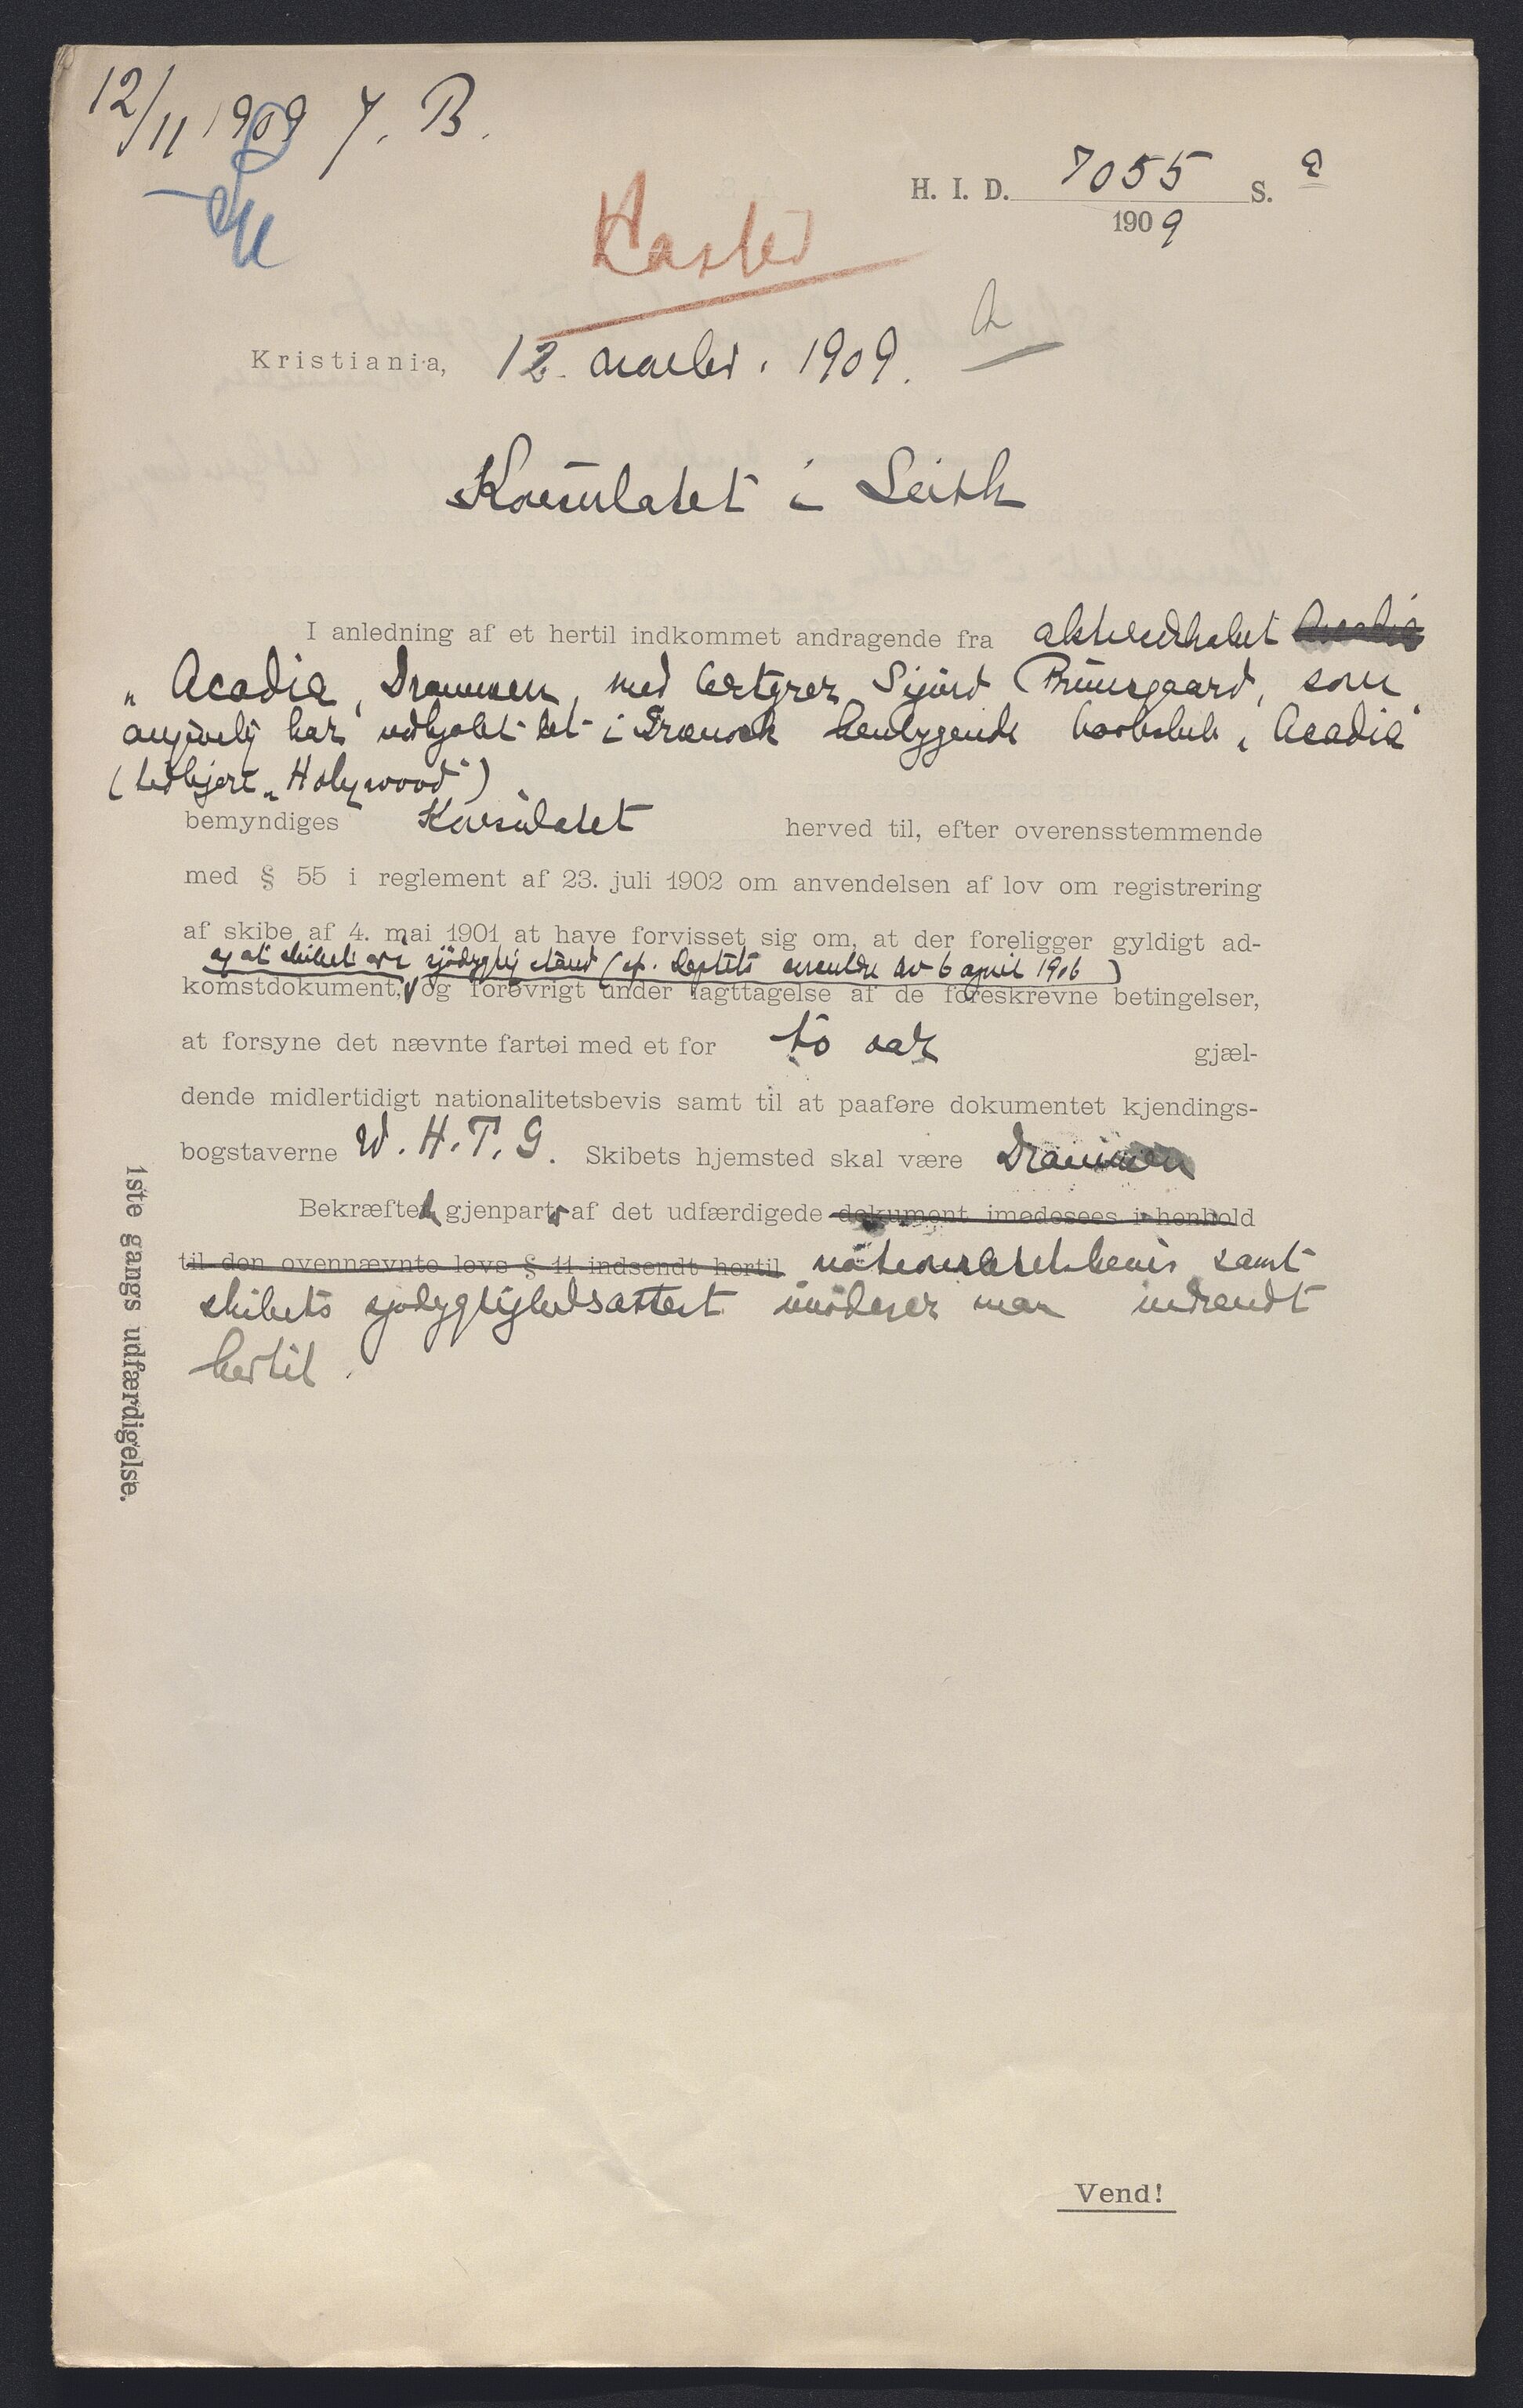 12/11 1909 J. B.
H. I. D. 7055 S. a
1909
Haster
Kristiania, 12. novbr. 1909.
Konsulatet i Leith
I anledning af et hertil indkommet andragende fra aktieselskabet Acadia
"Acadia, Drammen, med bestyrer Sigurd Bruusgaard, som
angivelig har indkjøbt det i Greenock henliggende barkskib "Acadia"
(tidligere "Holywood")
bemyndiges Konsulatet herved til, efter overensstemmende
med § 55 i reglement af 23. juli 1902 om anvendelsen af lov om registrering
af skibe af 4. mai 1901 at have forvisset sig om, at der foreligger gyldigt ad-
og at skibet er i sjødygtig stand (cf. Deptets cirkulære av 6 april 1906)
komstdokument, og forøvrigt under iagttagelse af de foreskrevne betingelser,
at forsyne det nævnte fartøi med et for to aar gjæl-
dende midlertidigt nationalitetsbevis samt til at paaføre dokumentet kjendings-
bogstaverne W. H. T. G. Skibets hjemsted skal være Drammen
Bekræftet gjenpart af det udfærdigede dokument imødesees i henhold
til den ovennævnte lovs § 11 indsendt hertil nationalitetsbevis samt
skibets sjødygtighedsattest imødeser man indsendt
hertil.
1ste gangs udfærdigelse.
Vend!